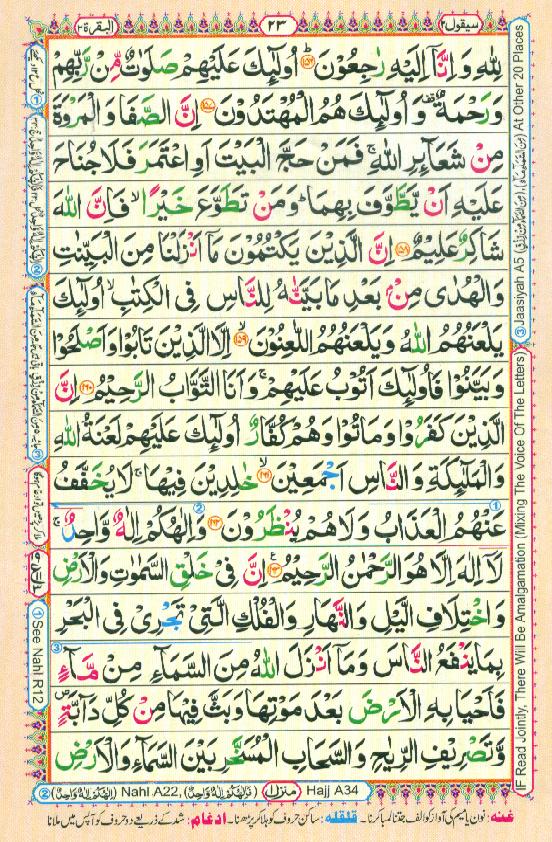 سیقول ٢
٢٣
البقرة ٢
لِلّٰهِ وَاِنَّاۤ اِلَيْهِ رٰجِعُوْنَ ؕ‏﴿۱۵۶﴾ اُولٰٓئِكَ عَلَيْهِمْ صَلَوٰتٌ مِّنْ رَّبِّهِمْ
وَرَحْمَةٌ ۟ وَاُولٰٓئِكَ هُمُ الْمُهْتَدُوْنَ ﴿۱۵۷﴾ اِنَّ الصَّفَا وَالْمَرْوَةَ
مِنْ شَعَآئِرِ اللّٰهِ ۚ فَمَنْ حَجَّ الْبَيْتَ اَوِ اعْتَمَرَ فَلَا جُنَاحَ
عَلَيْهِ اَنْ يَّطَّوَّفَ بِهِمَا ؕ وَمَنْ تَطَوَّعَ خَيْرًا ۙ فَاِنَّ اللّٰهَ
شَاكِرٌ عَلِيْمٌ ﴿۱۵۸﴾ اِنَّ الَّذِيْنَ يَكْتُمُوْنَ مَاۤ اَنْزَلْنَا مِنَ الْبَيِّنٰتِ
وَالْهُدٰى مِنْۢ بَعْدِ مَا بَيَّنّٰهُ لِلنَّاسِ فِى الْكِتٰبِ ۙ اُولٰٓئِكَ
يَلْعَنُهُمُ اللّٰهُ وَيَلْعَنُهُمُ اللّٰعِنُوْنَ ۙ‏﴿۱۵۹﴾ اِلَّا الَّذِيْنَ تَابُوْا وَاَصْلَحُوْا
وَبَيَّنُوْا فَاُولٰٓئِكَ اَتُوْبُ عَلَيْهِمْ ۚ وَاَنَا التَّوَّابُ الرَّحِيْمُ ﴿۱۶۰﴾ اِنَّ
الَّذِيْنَ كَفَرُوْا وَمَاتُوْا وَهُمْ كُفَّارٌ اُولٰٓئِكَ عَلَيْهِمْ لَعْنَةُ اللّٰهِ
وَالْمَلٰٓئِكَةِ وَالنَّاسِ اَجْمَعِيْنَ ۙ‏﴿۱۶۱﴾ خٰلِدِيْنَ فِيْهَا ۚ لَا يُخَفَّفُ
عَنْهُمُ الْعَذَابُ وَلَا هُمْ يُنْظَرُوْنَ ﴿۱۶۲﴾ وَاِلٰهُكُمْ اِلٰهٌ وَّاحِدٌ ۚ
لَاۤ اِلٰهَ اِلَّا هُوَ الرَّحْمٰنُ الرَّحِيْمُ ﴿۱۶۳﴾ اِنَّ فِىْ خَلْقِ السَّمٰوٰتِ وَالْاَرْضِ
وَاخْتِلَافِ الَّيْلِ وَالنَّهَارِ وَالْفُلْكِ الَّتِىْ تَجْرِىْ فِى الْبَحْرِ
بِمَا يَنْفَعُ النَّاسَ وَمَاۤ اَنْزَلَ اللّٰهُ مِنَ السَّمَآءِ مِنْ مَّآءٍ
فَاَحْيَا بِهِ الْاَرْضَ بَعْدَ مَوْتِهَا وَبَثَّ فِيْهَا مِنْ كُلِّ دَآبَّةٍ
وَّتَصْرِيْفِ الرِّيٰحِ وَالسَّحَابِ الْمُسَخَّرِ بَيْنَ السَّمَآءِ وَالْاَرْضِ
① See Nahl R12
③ Jaasiyah A5 At Other 20 Places
IF Read Jointly, There Will Be Amalgamation (Mixing The Voice Of The Letters)
② (اِلٰهُكُمْ اِلٰهٌ وَّاحِدٌ) Nahl A22, (فَاِلٰهُكُمْ اِلٰهٌ وَّاحِدٌ) Hajj A34
منزل ١
غنہ: نون یا میم کی آواز کو الف جتنا لمبا کرنا۔ قلقلہ: ساکن حروف کو ہلا کر پڑھنا۔ ادغام: شد کے ذریعے دو حروف کو آپس میں ملانا